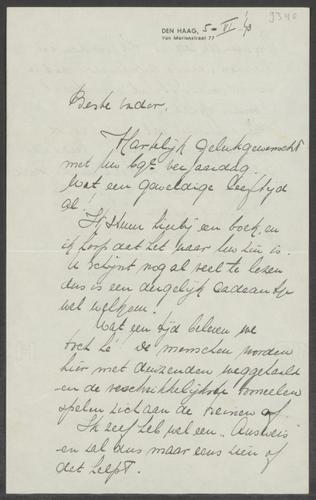 3340
DEN HAAG, 5-VI '43
Van Merlenstraat 77
Beste vader.
Hartelijk gelukgewenscht
met Uw verjaardag.
Wat een geweldige leeftijd
al!
Ik stuur hierbij een boek en
ik hoop dat het naar Uw zin is.
U schijnt nogal veel te lezen
dus is een dergelijk cadeautje
wel welkom.
Wat een tijd beleven we
toch hè! De menschen worden
hier met duizenden weggehaald
en de verschrikkelijkste tooneelen
spelen zich aan de treinen af
Ik zelf heb wel een Ausweis
en zal dus maar eens zien of
dat helpt.